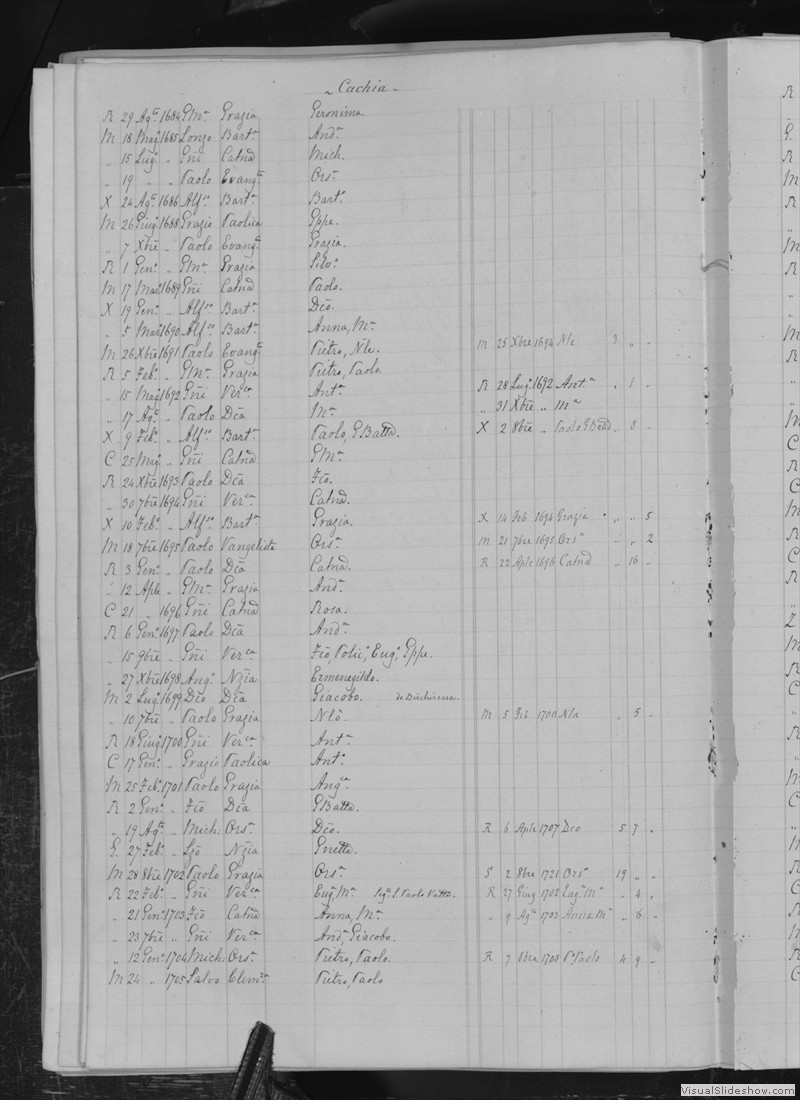 ~ Cachia ~
R 29 Agto 1684 GMa Grazia Geronima.
M 18 Magº 1685 Lonzo Barta Anda
„ 15 Lugº „ Gñi Catnã Mich.
„ 19 „ „ Paolo Evangta Orsa
X 24 Agto 1686 Alfso Barta Barto
M 26 Giugº 1688 Grazio Paolica Gppe.
„ 7 Xbre „ Paolo Evangta Grazia.
R 1 Genº „ GMa Grazia Silvº
M 17 Marº 1689 Gñi Catnã Paolo.
X 19 Genº „ Alfso Barta Dco.
„ 5 Marº 1690 Alfso Barta Anna, Ma
M 26 Xbre 1691 Paolo Evangta Pietro, Nle. M 25 Xbre 1694 Nle 3 „ „
R 5 Febº „ GMa Grazia Pietro, Paolo
„ 15 Magº 1692 Gñi Verca Anta R 28 Lugº 1692 Anta „ 1 „
„ 17 Agto „ Paolo Dca Ma „ 31 Xbre „ Ma
X 9 Febº „ Alfso Barta Paolo, GBatta. X 2 8bre „ Paolo GBatta „ 3 „
C 25 Magº „ Gñi Catnã GMa
R 24 Xbre 1693 Paolo Dca Fco.
„ 30 7bre 1694 Gñi Verca Catnã.
X 10 Febº „ Alfso Barta Grazia. X 14 Feb 1694 Grazia „ „ 5
M 18 7bre 1695 Paolo Vangelista Orsa M 21 7bre 1695 Orsa „ „ 2
R 3 Genº „ Paolo Dca Catnã. R 22 Aple 1696 Catnã „ 16 „
„ 12 Aple „ GMa Grazia Anda
C 21 „ 1696 Gñi Catnã Rosa.
R 6 Genº 1697 Paolo Dca Anda
„ 15 9bre „ Gñi Verca Fco, Policº, Eugº, Gppe.
„ 27 Xbre 1698 Angº Nzia Ermenegildo.
M 2 Lugº 1699 Dco Dca Giacobo.
„ 10 7bre „ Paolo Grazia Nlo. M 5 Feb 1700 Nla „ 5 „
R 18 Giugº 1700 Gñi Verca Anta
C 17 Genº „ Grazio Paolica Antº
M 25 Febº 1701 Paolo Grazia Angca
R 2 Genº „ Fco Dca GBatta.
„ 19 Agto „ Mich: Orsa Dco. R 6 Aple 1707 Dco 5 7 „
G. 27 Febº „ Lzo Nzia Gnetta.
M 28 8bre 1702 Paolo Grazia Orsa S 2 8bre 1721 Orsa 19 „ „
R 22 Febº „ Gñi Verca Eugº Ma R 27 Giug 1702 Euga Ma „ 4 „
„ 21 Genº 1703 Fco Catnã Anna, Ma „ 9 Agto 1703 Anna Ma „ 6 „
„ 23 7bre „ Gñi Verca Anda, Giacobo.
„ 12 Genº 1704 Mich: Orsa Pietro, Paolo. R 7 8bre 1708 Po Paolo 4 9 „
M 24 „ 1705 Salvo Clemza Pietro, Paolo
VisualSlideshow.com